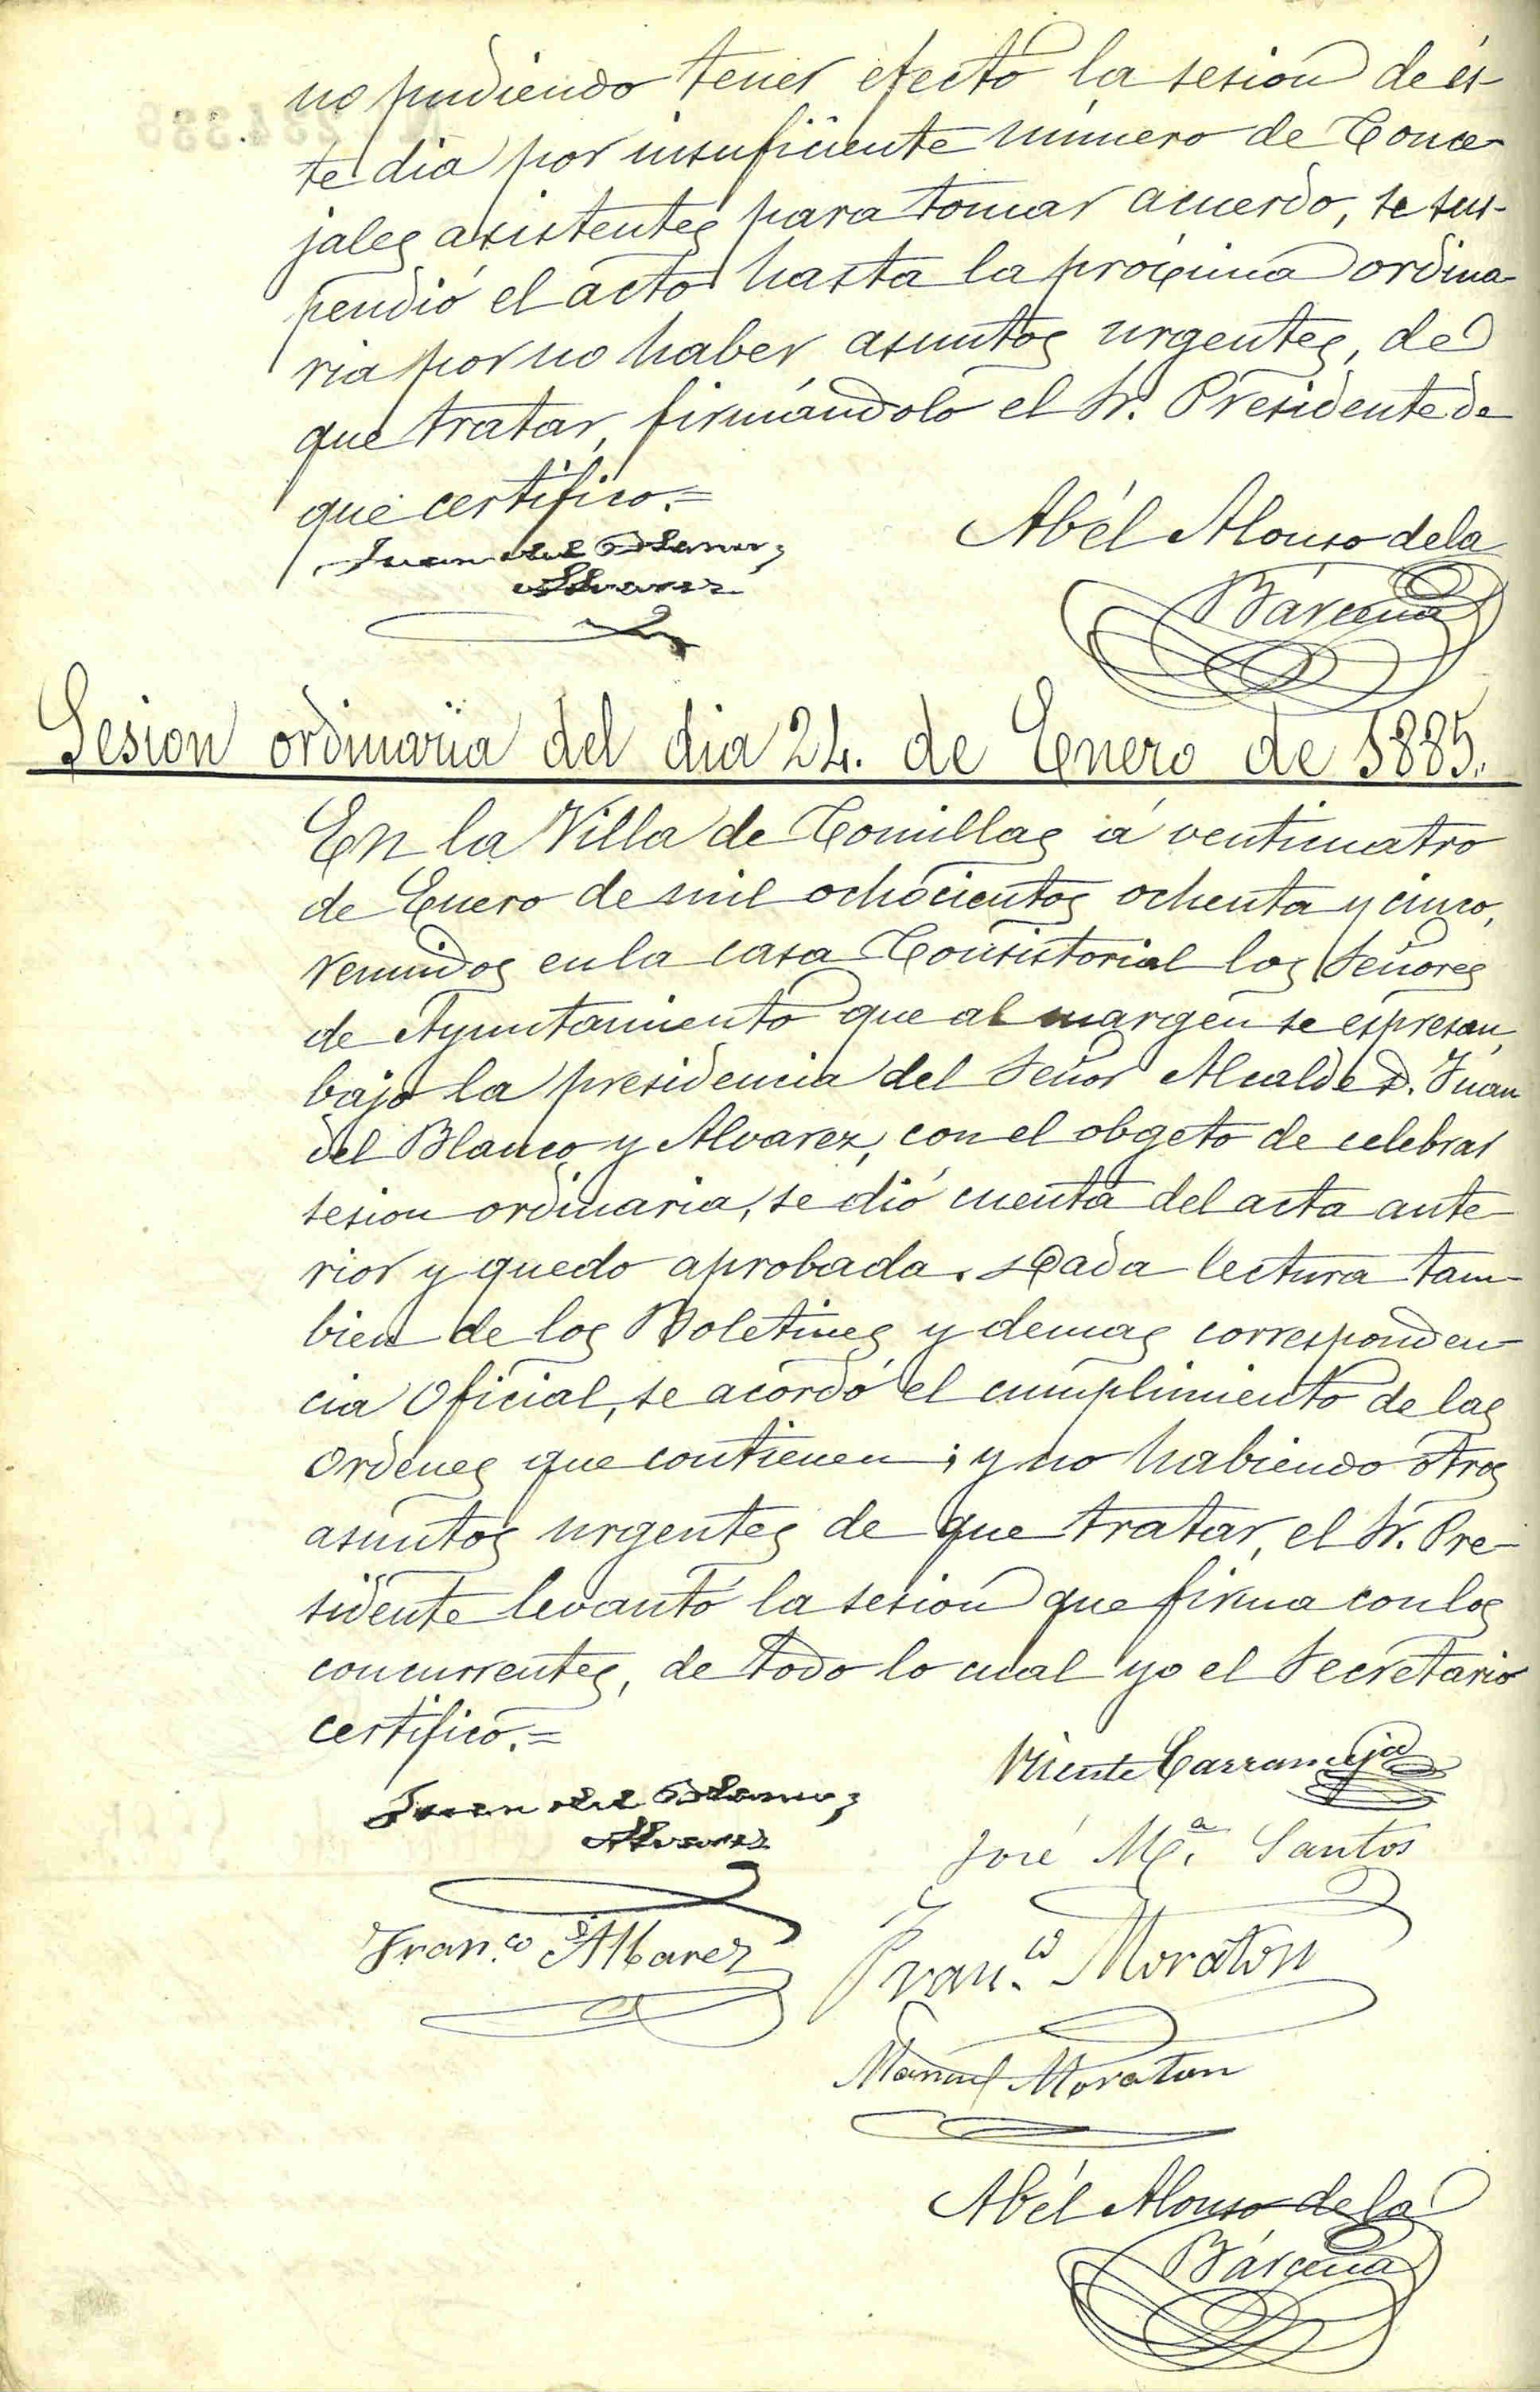 no pudiendo tener efecto la sesion de és-
te dia por insuficiente número de Conce-
jales asistentes para tomar acuerdo, se sus-
pendió el acto hasta la próxima ordina-
ria por no haber asuntos urgentes, de
que tratar, firmándolo el Sr. Presidente de
que certifico.=
Juan del Blanco y
Alvarez
Abél Alonso de la
Bárcena
Sesion ordinaria del dia 24. de Enero de 1885.
En la Villa de Comillas á venticuatro
de Enero de mil ochocientos ochenta y cinco,
reunidos en la casa Consistorial los Señores
de Ayuntamiento que al margen se espresan,
bajo la presidencia del Señor Alcalde D. Juan
del Blanco y Alvarez, con el obgeto de celebrar
sesion ordinaria, se dió cuenta del acta ante-
rior y quedo aprobada. Dada lectura tam-
bien de los Boletines y demas corresponden-
cia Oficial, se acordó el cumplimiento de las
Ordenes que contienen; y no habiendo otros
asuntos urgentes de que tratar, el Sr. Pre-
sidente levantó la sesion que firma con los
concurrentes, de todo lo cual yo el Secretario
certifico.=
Vicente Carranceja
Juan del Blanco y
Alvarez
José Mª. Santos
Fran.co Albarez
Fran.co Moraton
Manuel Moraton
Abél Alonso de la
Bárcena